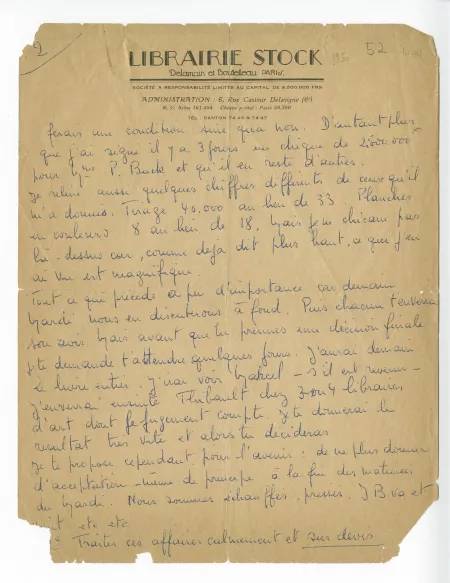 2
52
LIBRAIRIE STOCK
Delamain et Boutelleau, PARIS.
SOCIÉTÉ A RESPONSABILITÉ LIMITÉE AU CAPITAL DE 5.000.000 FRS
ADMINISTRATION : 6, Rue Casimir Delavigne (6e)
TÉL. DANTON
ferais une condition sine qua non. D'autant plus
que j'ai signé il y a 3 jours un chèque de 2.000.000
pour Mme P. Buck et qu'il en reste d'autres.
Je relève aussi quelques chiffres différents de ceux qu'il
m'a donnés. Tirage 40.000 au lieu de 33. Planches
en couleurs 8 au lieu de 18. Mais je ne chicane pas
là-dessus car, comme déjà dit plus haut, ce que j'en
ai vu est magnifique.
Tout ce qui précède a peu d'importance car demain
Mardi nous en discuterons à fond. Puis chacun t'enverra
son avis. Mais avant que tu prennes une décision finale
je te demande d'attendre quelques jours. J'aurai demain
le livre entier. J'irai voir Marcel - s'il est revenu -
J'enverrai ensuite Thibault chez 3 ou 4 libraires
d'art dont le jugement compte. Je te donnerai le
résultat très vite et alors tu décideras
Je te propose cependant pour l'avenir : de ne plus donner
d'acceptation même de principe à la fin des matinées
du Mardi. Nous sommes échauffés, pressés, J B va et
vient etc etc
Traiter ces affaires calmement et sur devis